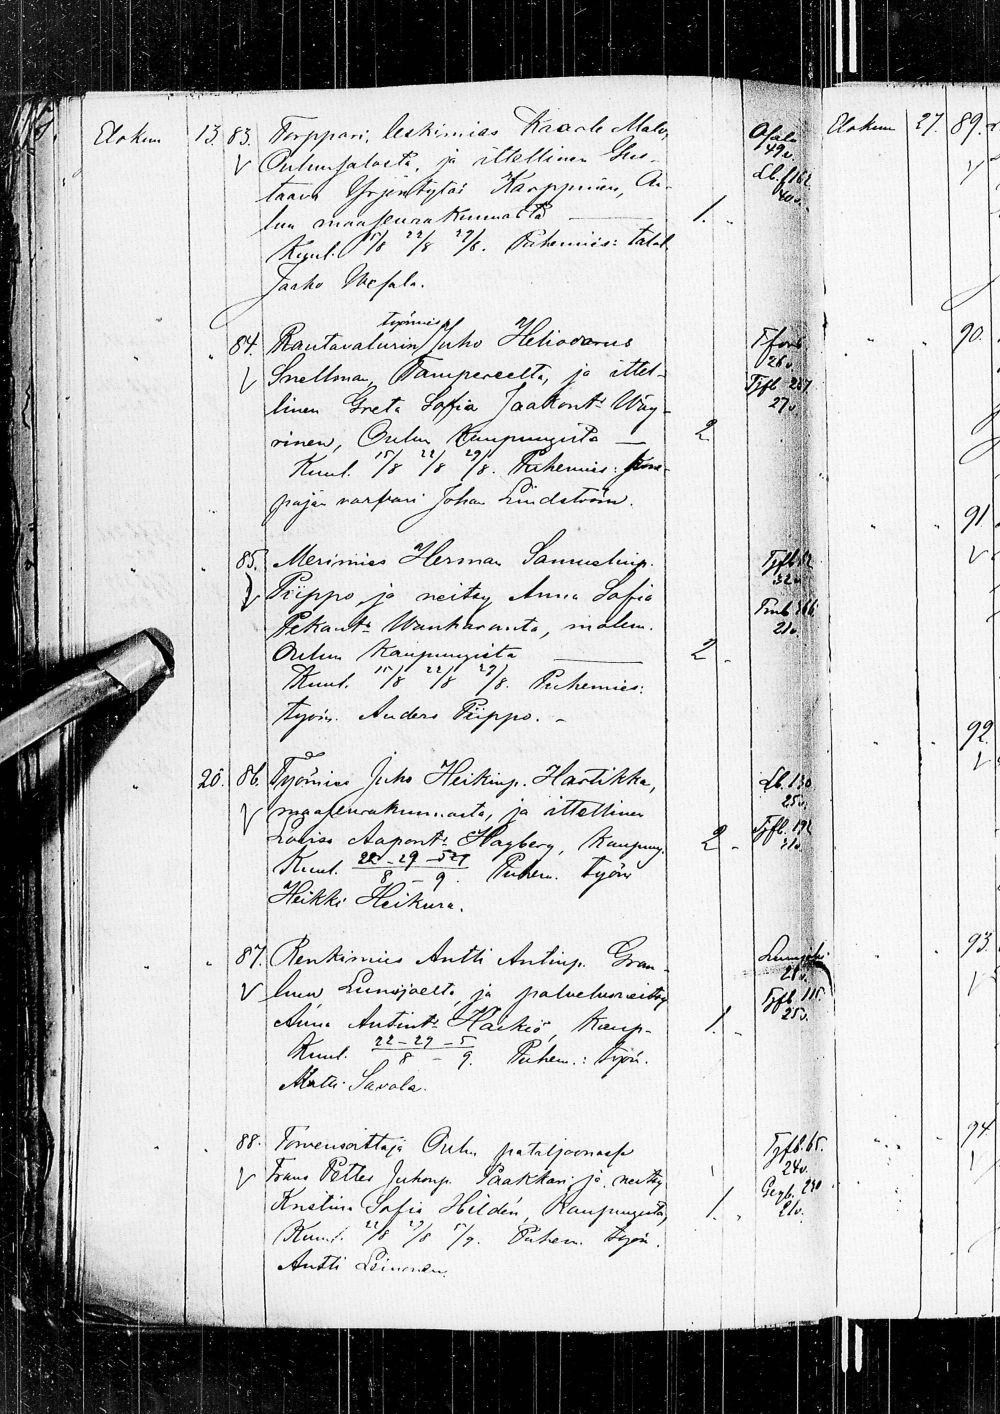 Elokuu 13. 83. Torppari, leskimies Kaarle Malo,
Oulunsalosta, ja ittellinen Gus-
taava Yrjöntytär Karppinen, Ou-
lun maaseurakunnasta — 1.
Kuul. 15/8 22/8 29/8. Puhemies: talol.
Jaako Wesala.
Osalo
49 v.
Lb. f 162
40 v.
84. Rautavalurin työmies Juho Heliodorus
Snellman, Tampereelta, ja ittel-
linen Greta Sofia Jaakont. Wäy-
rinen, Oulun kaupungista — 2.
Kuul. 15/8 22/8 29/8. Puhemies: kone-
pajan varvari Johan Lindström.
26 v.
Tjfb 237
27 v.
85. Merimies Herman Samuelinp.
Piippo ja neitsy Anna Sofia
Pekant. Wanharanta, molem.
Oulun kaupungista — 2.
Kuul. 15/8 22/8 29/8. Puhemies:
työm. Anders Piippo. –
Tjfb 52
32 v.
366
21 v.
20. 86. Työmies Juho Heikinp. Hartikka,
maaseurakunnasta, ja ittellinen
Lovisa Aapont. Hagberg, kaupung. 2.
Kuul. 22 – 29 – 5/8 – 9. Puhem. työm
Heikki Heikura.
Lb. 130
25 v.
Tjfb. 192
31 v.
87. Renkimies Antti Antinp. Gran-
lun, Lumijoelta, ja palvelusneitsy
Anna Antint. Härkiö, kaup- 1.
Kuul. 22 – 29 – 5/8 – 9. Puhem.: työm.
Matti Savola.
Lumijoki
21 v.
Tjfb. 115.
25 v.
88. Torvensoittaja Oulun pataljoonassa
Frans Petter Juhonp. Paakkari ja neitsy
Kristina Sofia Hildén, kaupungista, 1.
Kuul. 22/8 29/8 5/9. Puhem. työm.
Antti Leinonen.
Tjfb. 65.
24 v.
230
21 v.
Elokuu 27. 89.
90.
91
92
93.
94